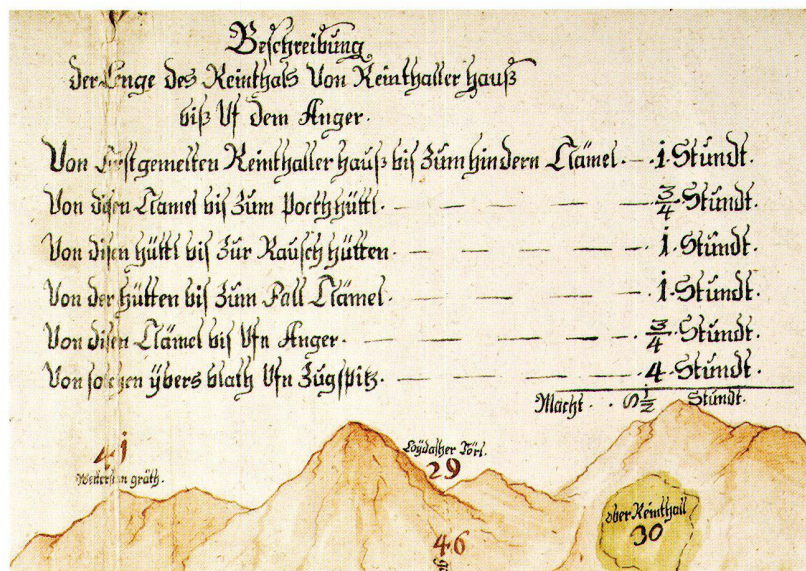 Beschreibung
der Enge des Reinthals Von Reinthaller hauß
biß Vf dem Anger.
Von Erstgemelten Reinthaller hauß bis Zum hindern Clämel. — 1. Stundt.
Von disen Clamel bis Zum Pockh hüttl. — — — — — 3/4. Stundt.
Von disen hüttl bis Zur Rausch hütten. — — — — — 1. Stundt.
Von der hütten bis Zum Fall Clämel. — — — — — 1. Stundt.
Von disen Clämel bis Vfn Anger. — — — — — 3/4. Stundt.
Von solchen ybers blath Vfn Zugspitz. — — — — — 4. Stundt.
Macht . . 8 1/2 Stundt.
41
Wetterstain gräth.
29
46
ober Reinthall
30